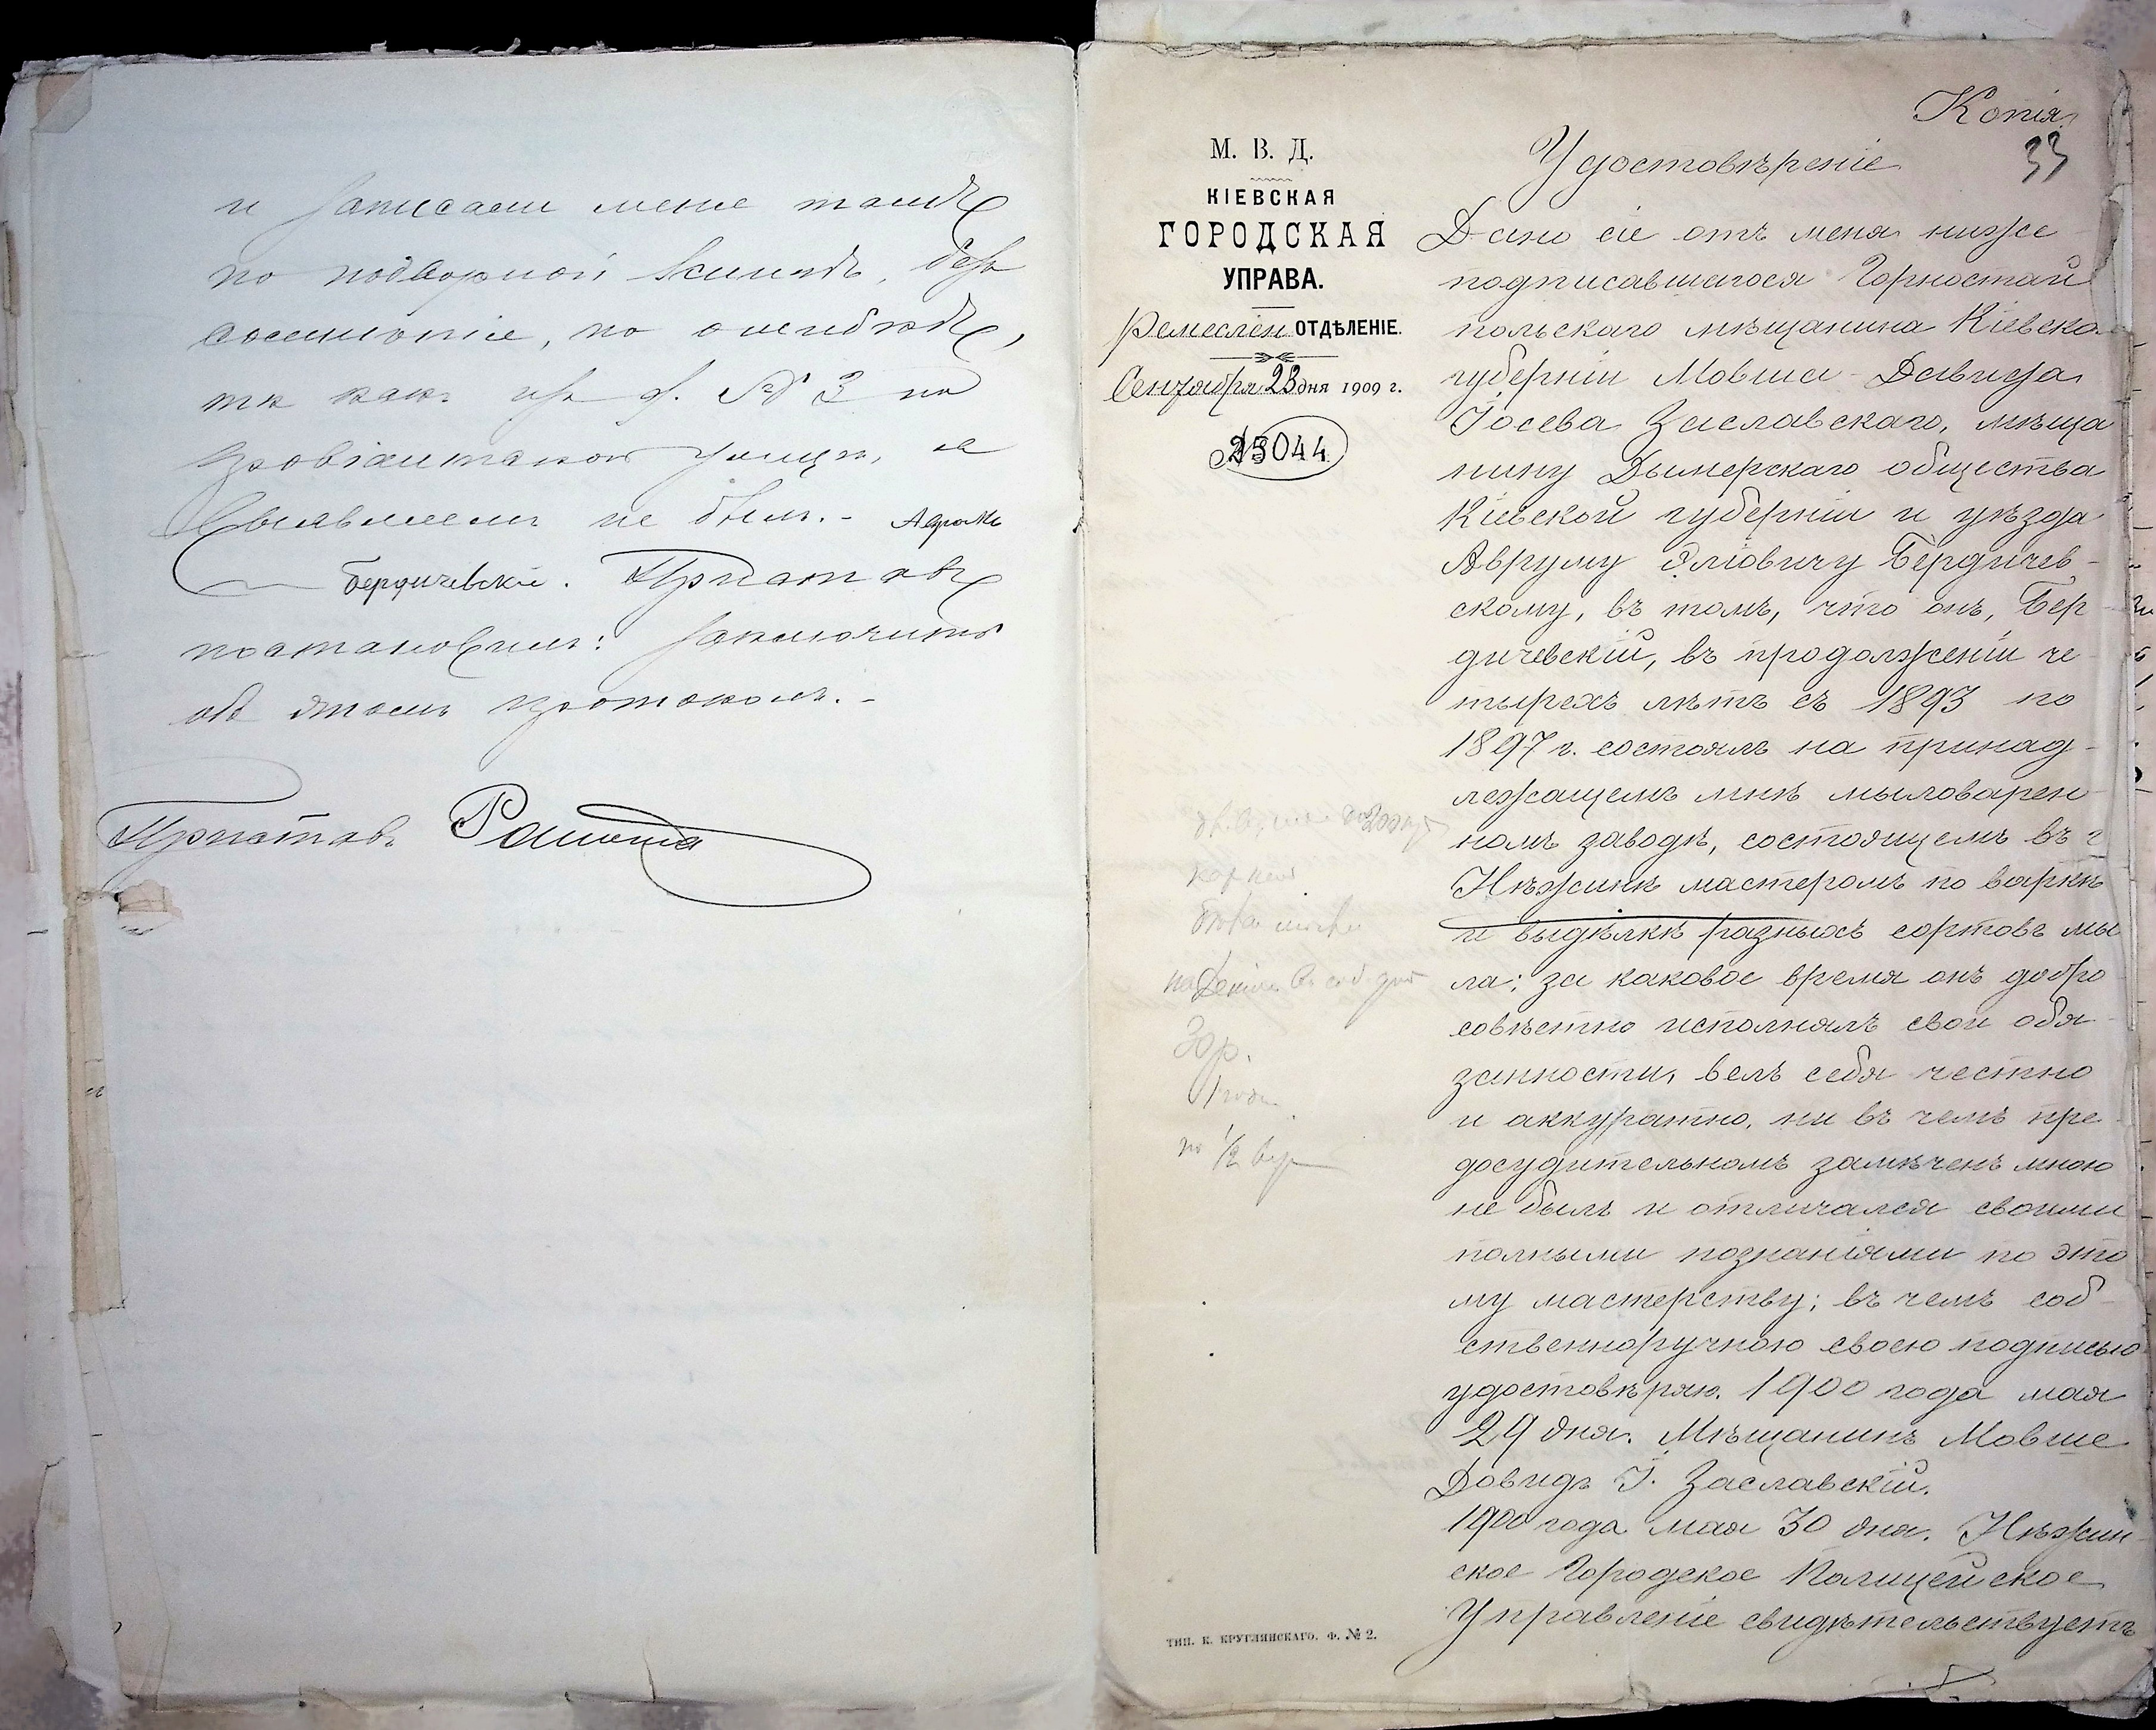 и записали меня тамъ
по подворной книгѣ, безъ
сомнѣнія, по ошибкѣ,
такъ какъ изъ д. № 3 по
Провіантской улицѣ, я
выявленъ не былъ. - Авромъ
Бердичевскій. Приставъ
постановилъ: заключить
объ этомъ протоколъ. -
Приставъ
Копія.
33
М. В. Д.
КІЕВСКАЯ
ГОРОДСКАЯ
УПРАВА.
Ремеслен. ОТДѢЛЕНІЕ.
Сентября 23 дня 1909 г.
№ 25044
Удостовѣреніе
Дано сіе отъ меня ниже
подписавшагося Горностай
польскаго мѣщанина Кіевско
губерніи Мовша-Давида
Іосева Заславскаго, мѣща
нину Дымерскаго общества
Кіевской губерніи и уѣзда
Авруму Эліовичу Бердичев-
скому, въ томъ, что онъ, Бер
дичевскій, въ продолженіи че
тырехъ лѣтъ съ 1893 по
1897 г. состоялъ на принад-
лежащемъ мнѣ мыловарен
номъ заводѣ, состоящемъ въ г
Нѣжинѣ мастеромъ по варкѣ
и выдѣлкѣ разныхъ сортовъ мы
ла; за каковое время онъ добро
совѣстно исполнялъ свои обя
занности, велъ себя честно
и аккуратно, ни въ чемъ пре
досудительномъ замѣченъ мною
не былъ и отличался своими
полными познаніями по это
му мастерству; въ чемъ соб-
ственноручною своею подписью
удостовѣряю. 1900 года мая
29 дня. Мѣщанинъ Мовше
Довидъ І. Заславскій.
1900 года мая 30 дня. Нѣжин-
ское Городское Полицейское
Управленіе свидѣтельствуетъ
30 р.
по 1/2
ТИП. К. КРУГЛЯНСКАГО. Ф. № 2.